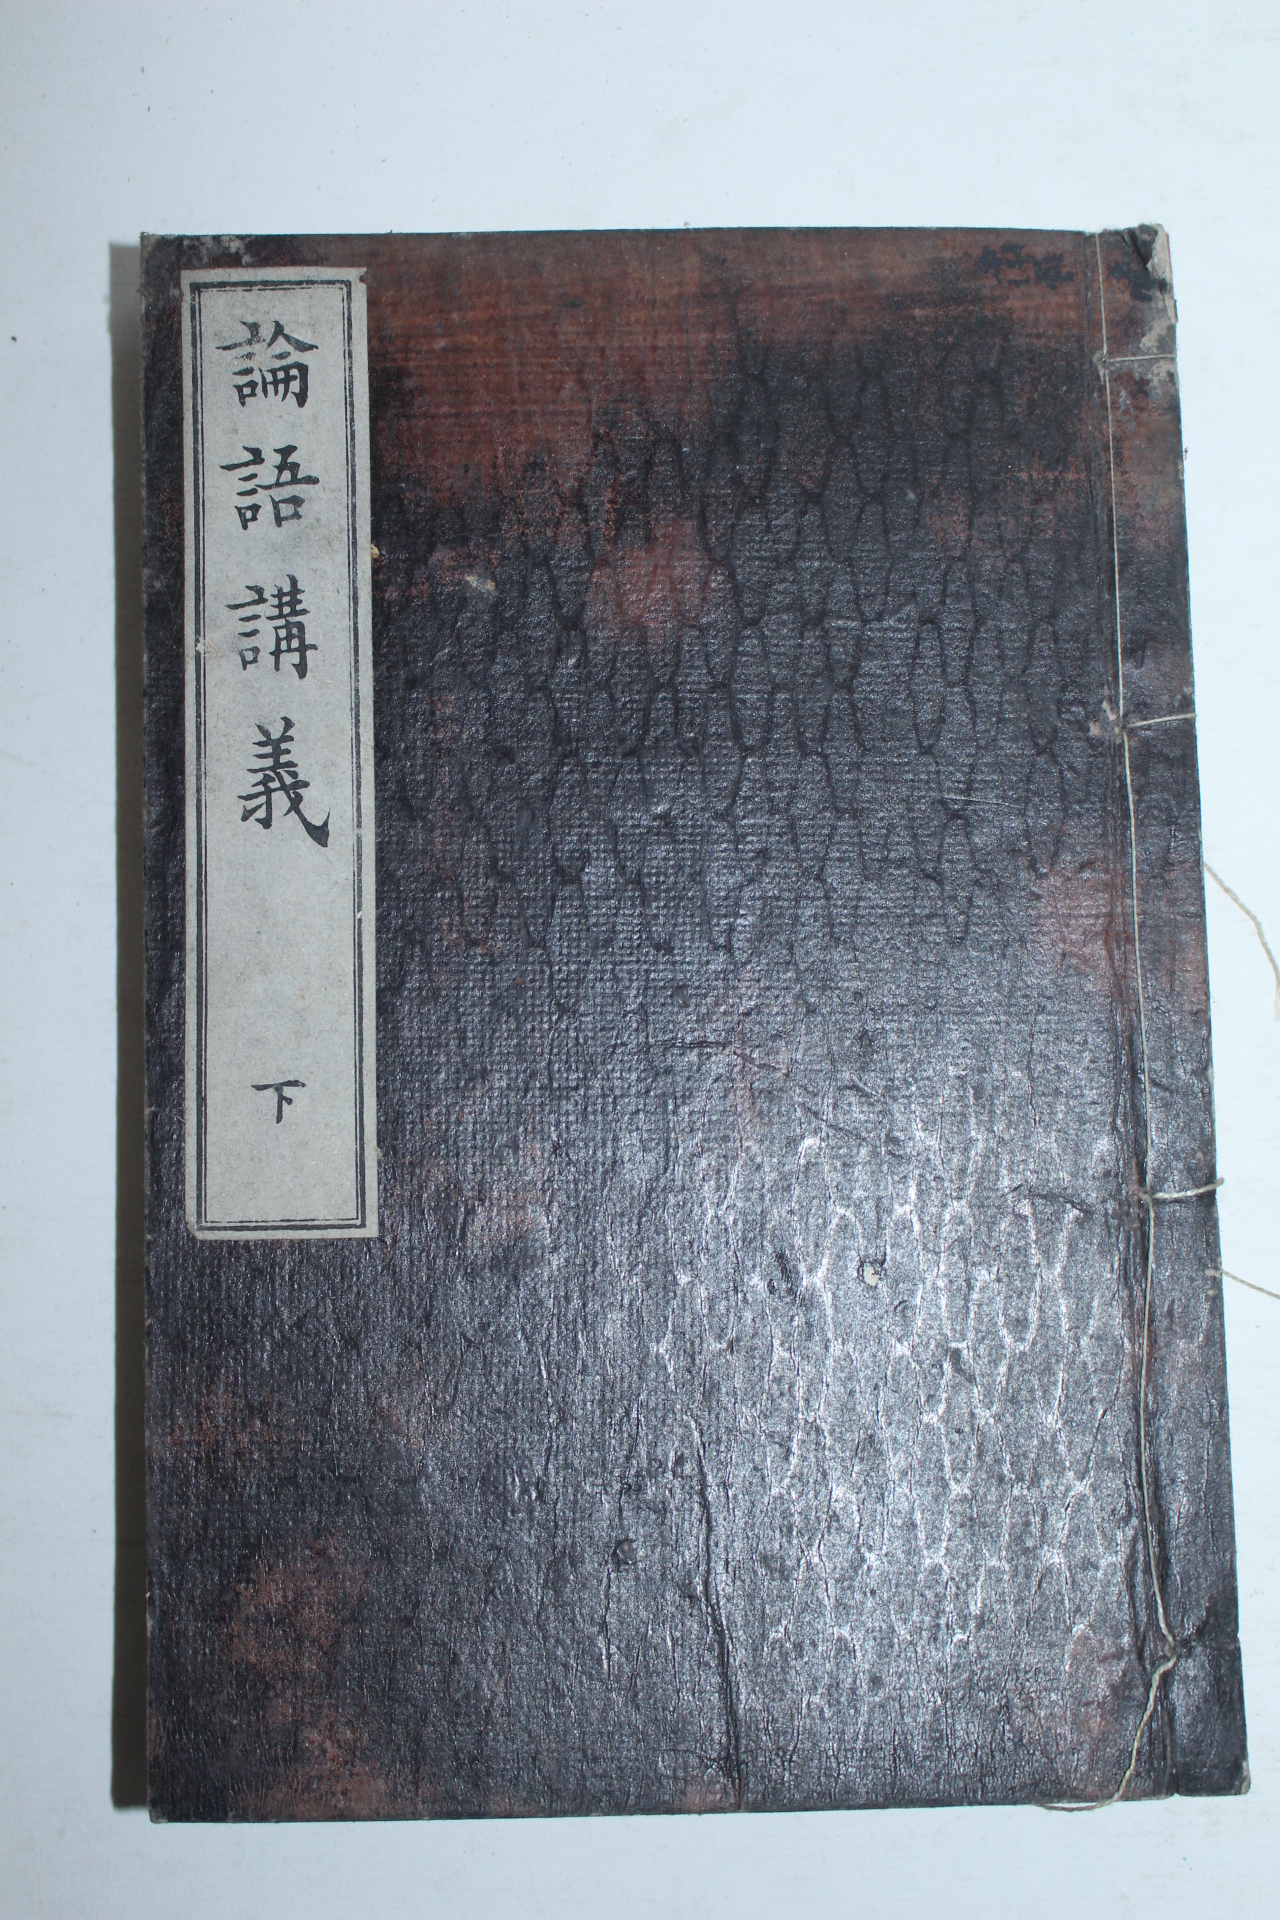 論語講義 下